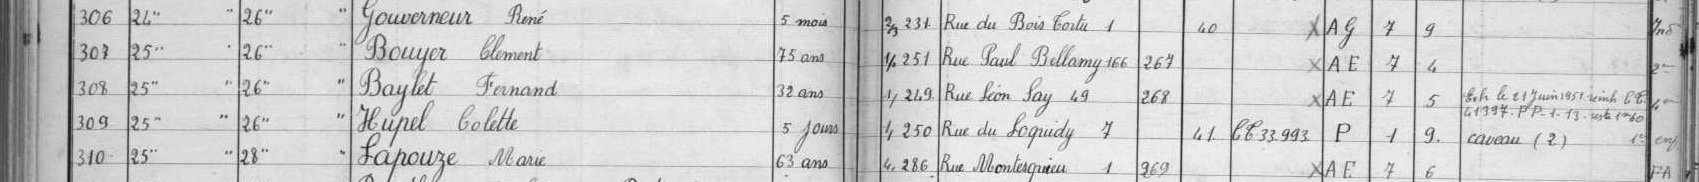 306 24" " 26" " Gouverneur René 5 mois 2/3 231 Rue du Bois Tortu 1 40 X A G 7 9
307 25" " 26" " Bouyer Clement 75 ans 251 Rue Paul Bellamy 166 267 X A E 7 4
308 25" " 26" " Baylet Fernand 32 ans 249 Rue Léon Say 49 268 X A E 7 5 Exh. le 21 Juin 1951 CC
41397. PP. 1. 13.
309 25" " 26" " Hupel Colette 5 jours 250 Rue du Loquidy 7 41 CC 33.993 P 1 9. caveau (2)
310 25" " 28" " Lapouze Marie 63 ans 286 Rue Montesquieu 1 269 X A E 7 6 FA